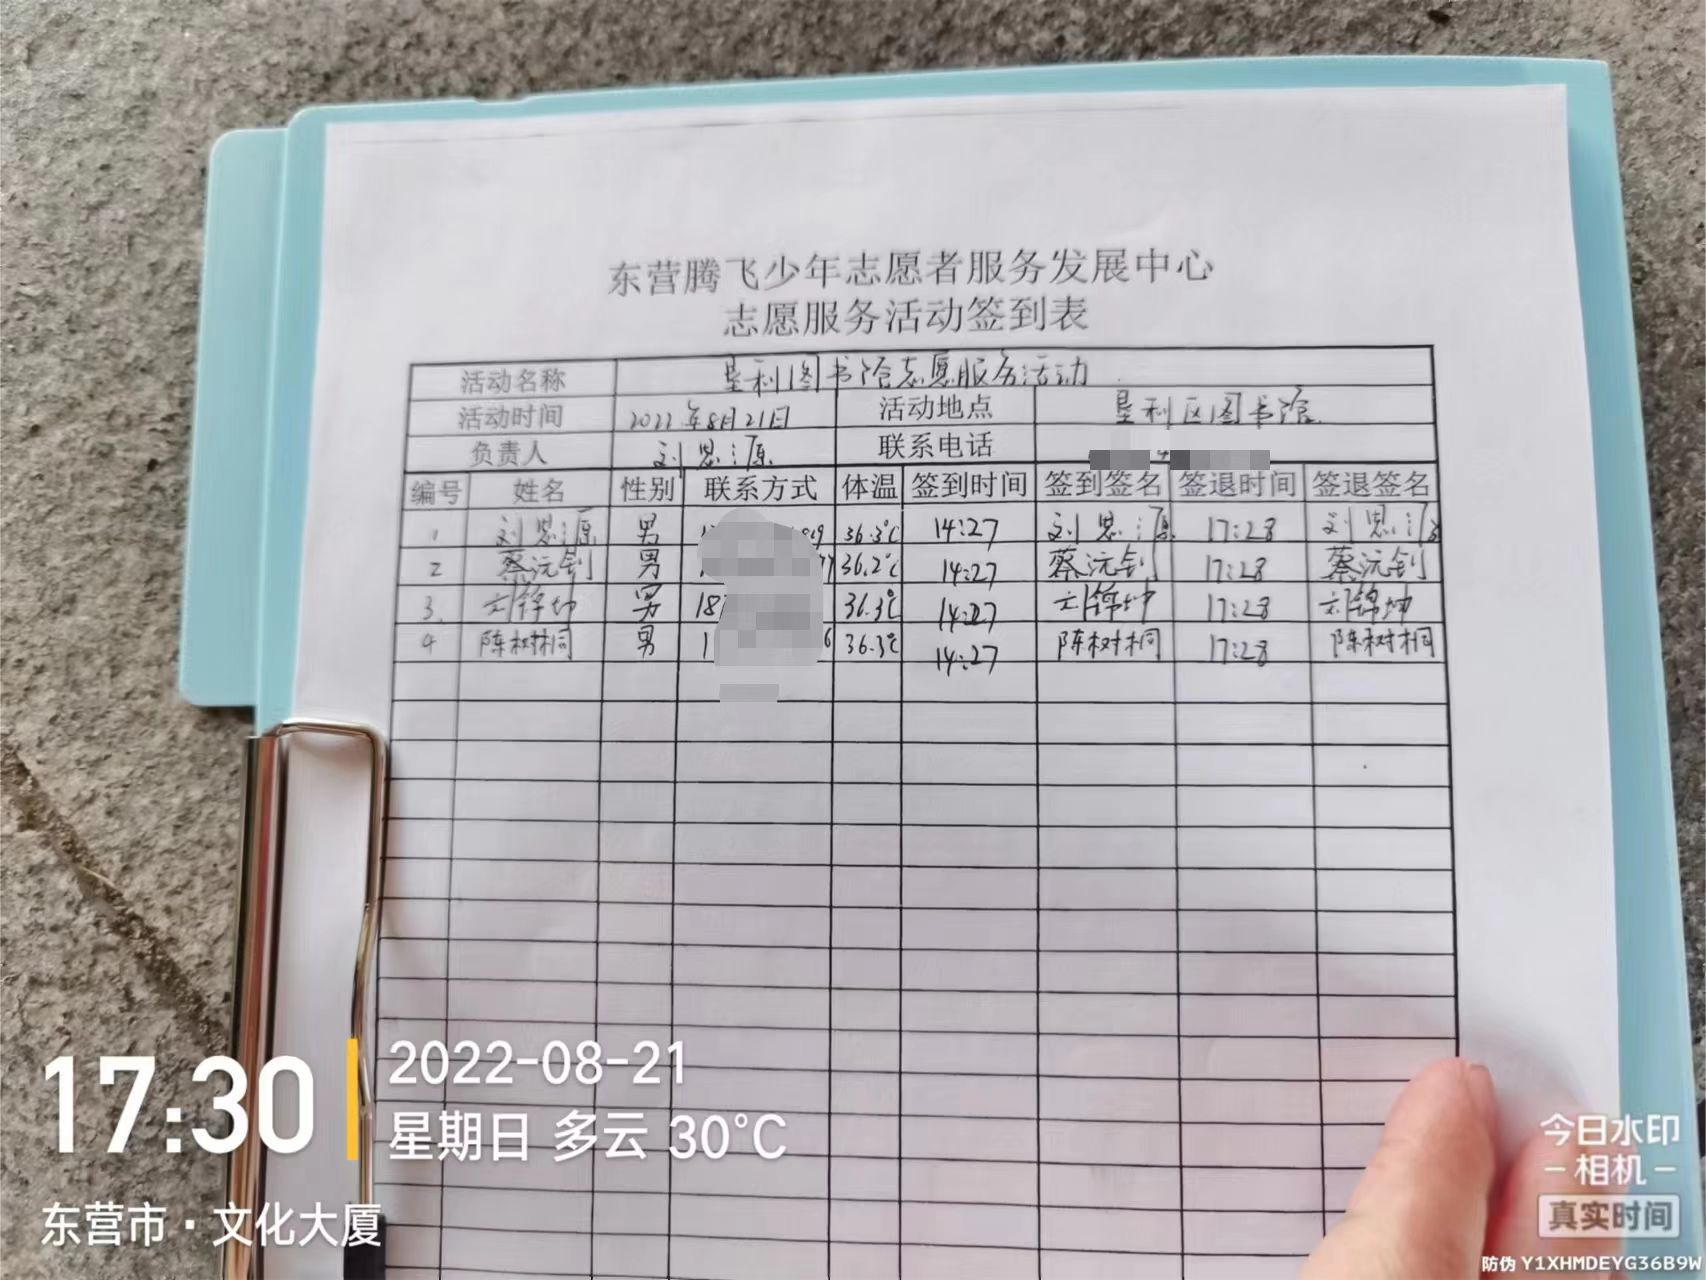 东营腾飞少年志愿者服务发展中心
志愿服务活动签到表
活动名称 垦利图书馆志愿服务活动
活动时间 2022年8月21日 活动地点 垦利区图书馆
负责人 刘思源 联系电话
编号 姓名 性别 联系方式 体温 签到时间 签到签名 签退时间 签退签名
1 刘思源 男 36.3℃ 14:27 刘思源 17:28 刘思源
2 蔡沅钊 男 36.2℃ 14:27 蔡沅钊 17:28 蔡沅钊
3. 刘锦坤 男 187 36.3℃ 14:27 刘锦坤 17:28 刘锦坤
4 陈树桐 男 1 6 36.3℃ 14:27 陈树桐 17:28 陈树桐
17:30
2022-08-21
星期日 多云 30°C
东营市·文化大厦
今日水印
-相机-
真实时间
防伪 Y1XHMDEYG36B9W